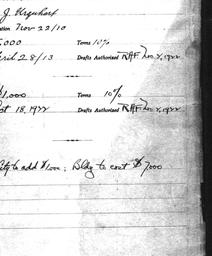 J. Urquhart
ation Nov 22/10
,000 Terms 10%
ril 28/13 Drafts Authorized RAF Nov 2, 1922
$1,000 Terms 10%
pt 18, 1922 Drafts Authorized RAF Nov 2, 1922
ity to add $1,000; Bldg to cost $7,000